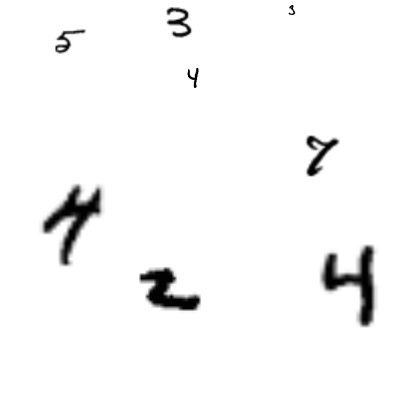 5 3 3
4
7
4
2 4